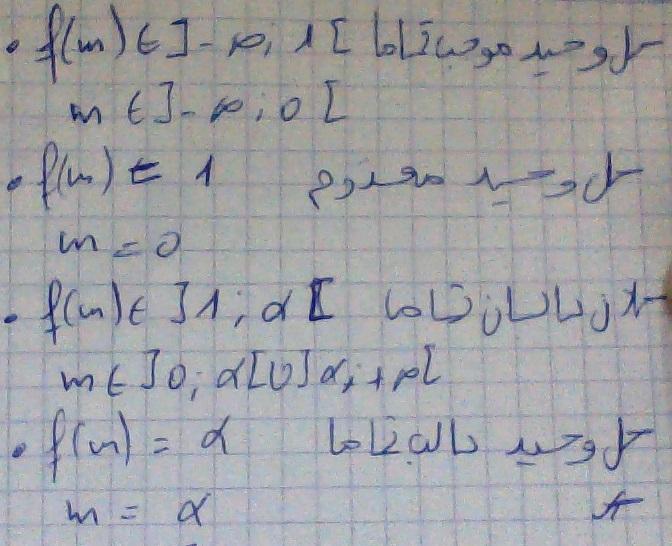 • f(m) ∈ ]-∞; 1[ حل وحيد موجب تماما
m ∈ ]-∞; 0[
• f(m) = 1 حل وحيد معدوم
m = 0
• f(m) ∈ ]1; α[ حلان سالبان تماما
m ∈ ]0; α[∪]α; +∞[
• f(m) = α حل وحيد سالب تماما
m = α